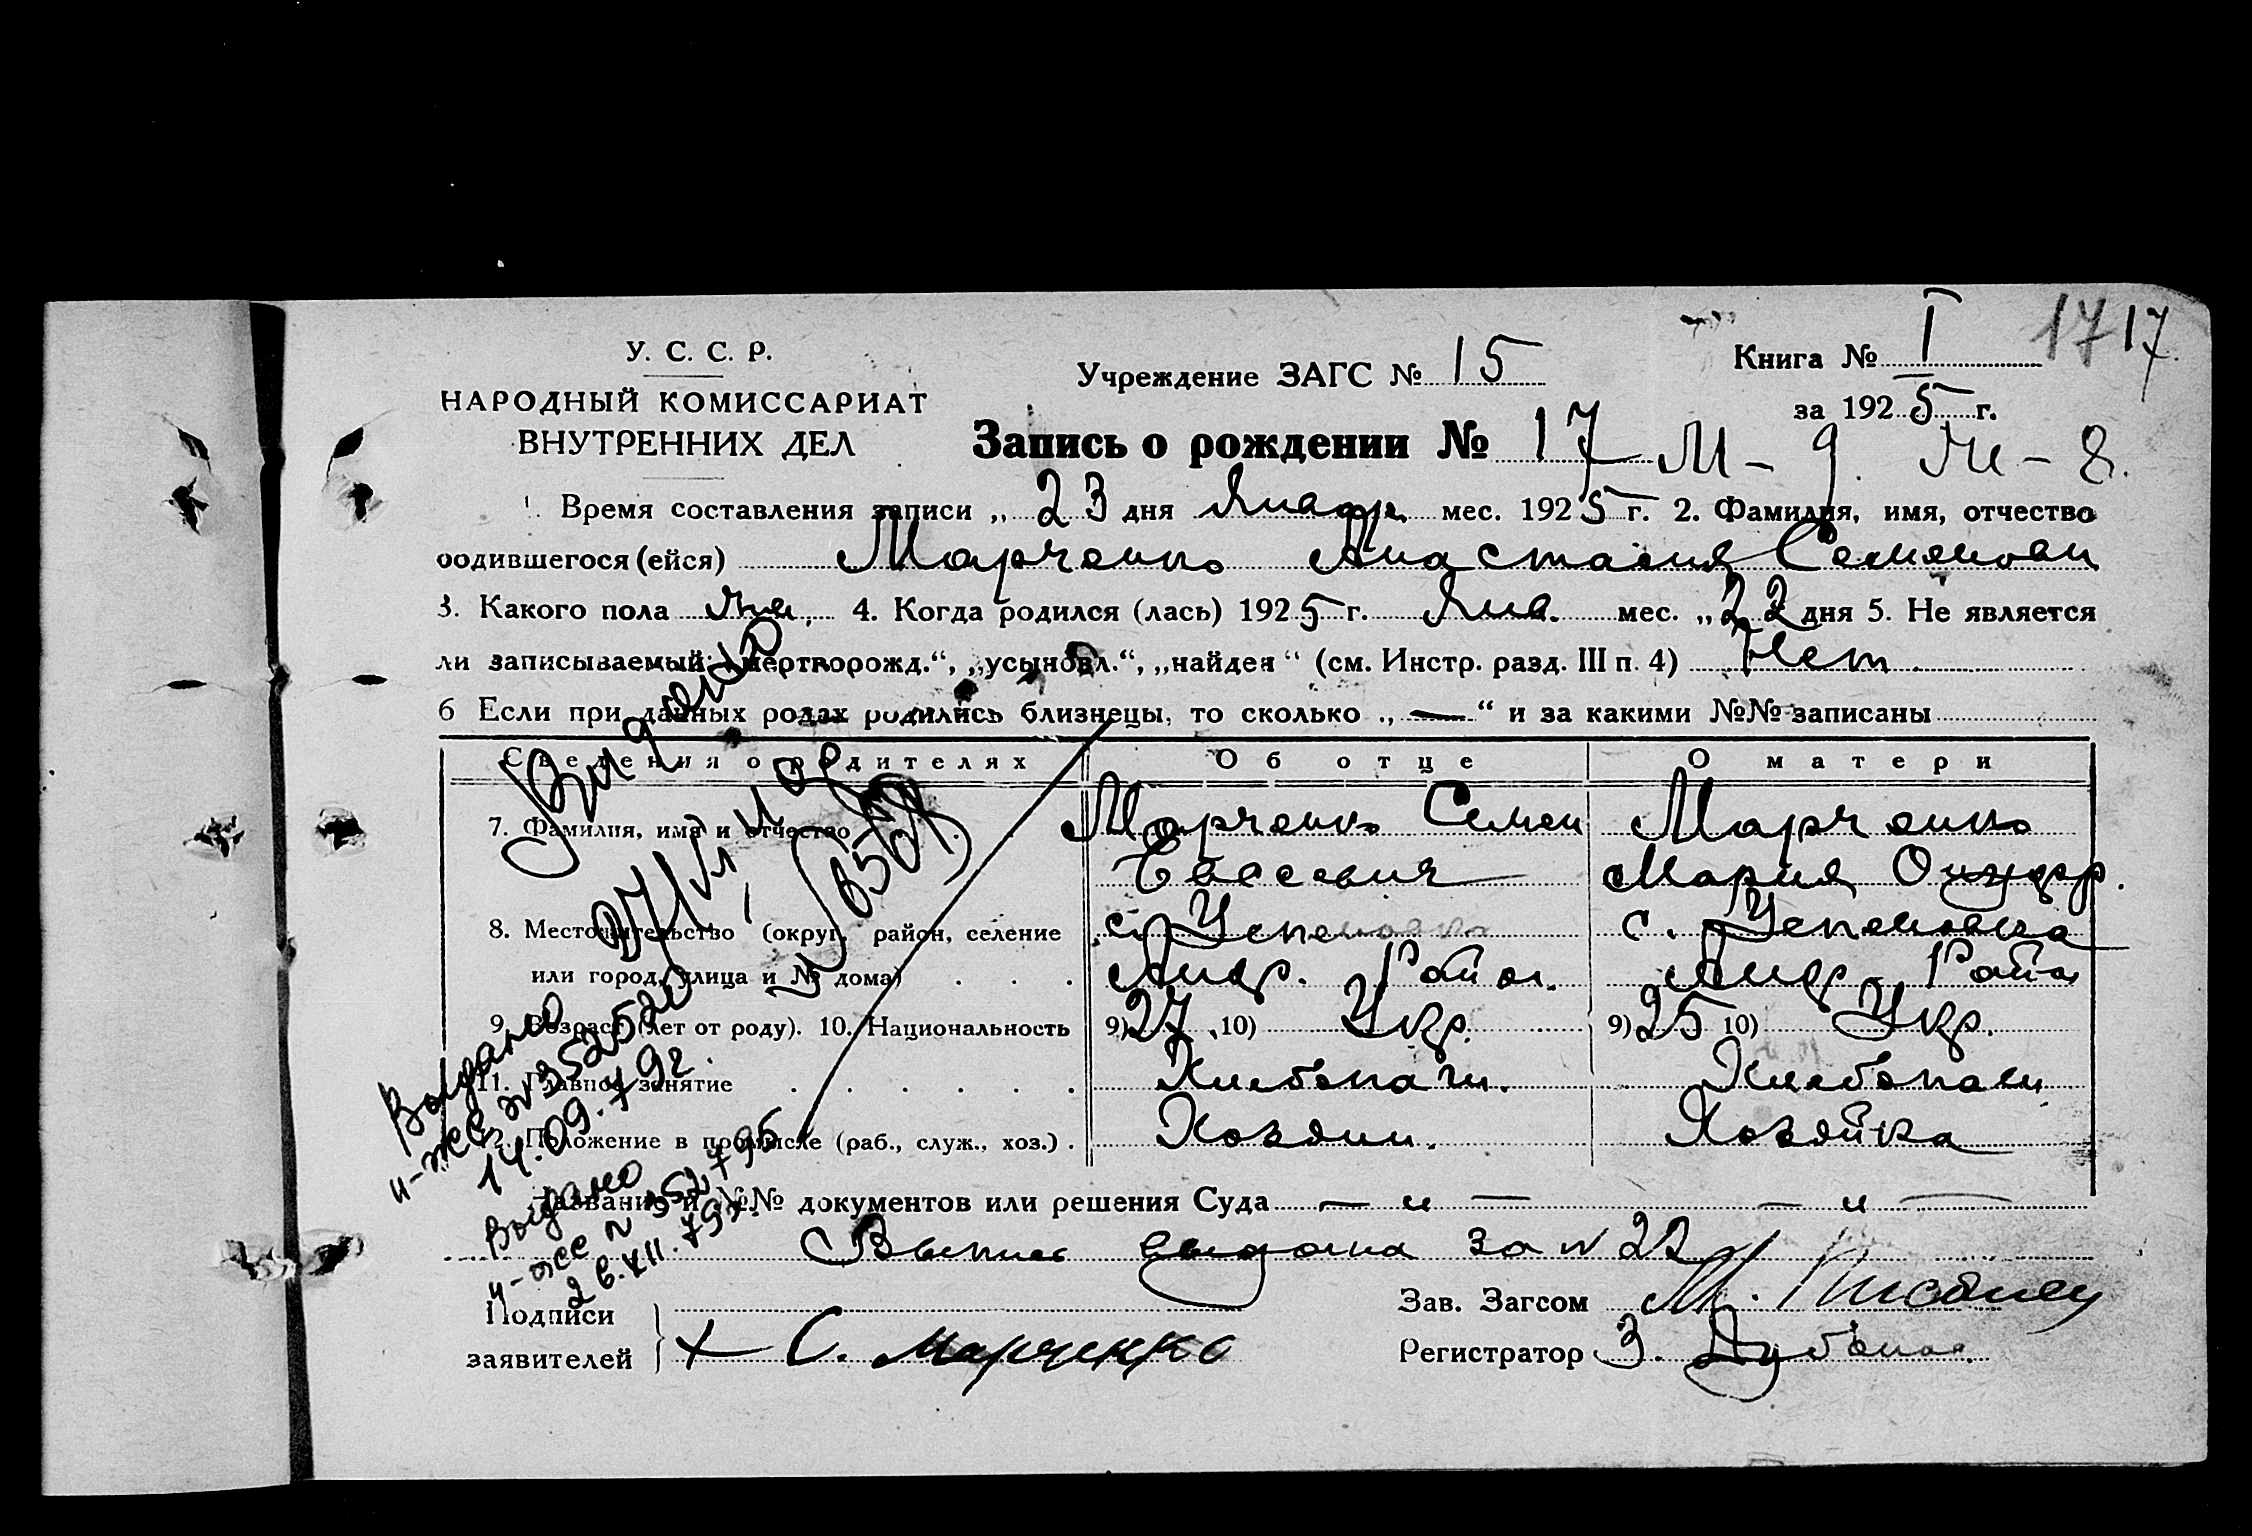 У. С. С. Р.
НАРОДНЫЙ КОМИССАРИАТ
ВНУТРЕННИХ ДЕЛ
Учреждение ЗАГС № 15
Книга № I
17 17
за 1925 г.
Запись о рождении № 17 М - 9. Ж - 8.
1. Время составления записи „23 дня Январ. мес. 1925 г. 2. Фамилия, имя, отчество
родившегося (ейся) Марченко Анастасия Семеновн
3. Какого пола жен. 4. Когда родился (лась) 1925 г. Янв. мес. „22 дня 5. Не является
ли записываемый: „мертворожд.“, „усыновл.“, „найден“ (см. Инстр. разд. III п. 4) Нет.
6 Если при данных родах родились близнецы, то сколько „—“ и за какими №№ записаны
Сведения о родителях Об отце О матери
7. Фамилия, имя и отчество Марченко Семен Марченко
Евсеевич Мария
8. Местожительство (округ, район, селение с. Успеновка с. Успеновка
или город, улица и № дома) Андр. Район. Андр. Район
9. Возраст (лет от роду). 10. Национальность 9) 27 10) Укр. 9) 25 10) Укр.
11. Главное занятие Хлебопаш. Хлебопаш
12. Положение в промысле (раб., служ., хоз.) Хозяин. Хозяйка
Название и №№ документов или решения Суда — „ — — „ —
Выпись выдана за № 22
Подписи
заявителей
+ С. Марченко
Зав. Загсом М.
Регистратор З.
Выдано
Выдано
н-же № 3525520
14.09.79г.
Выдано
н-же №